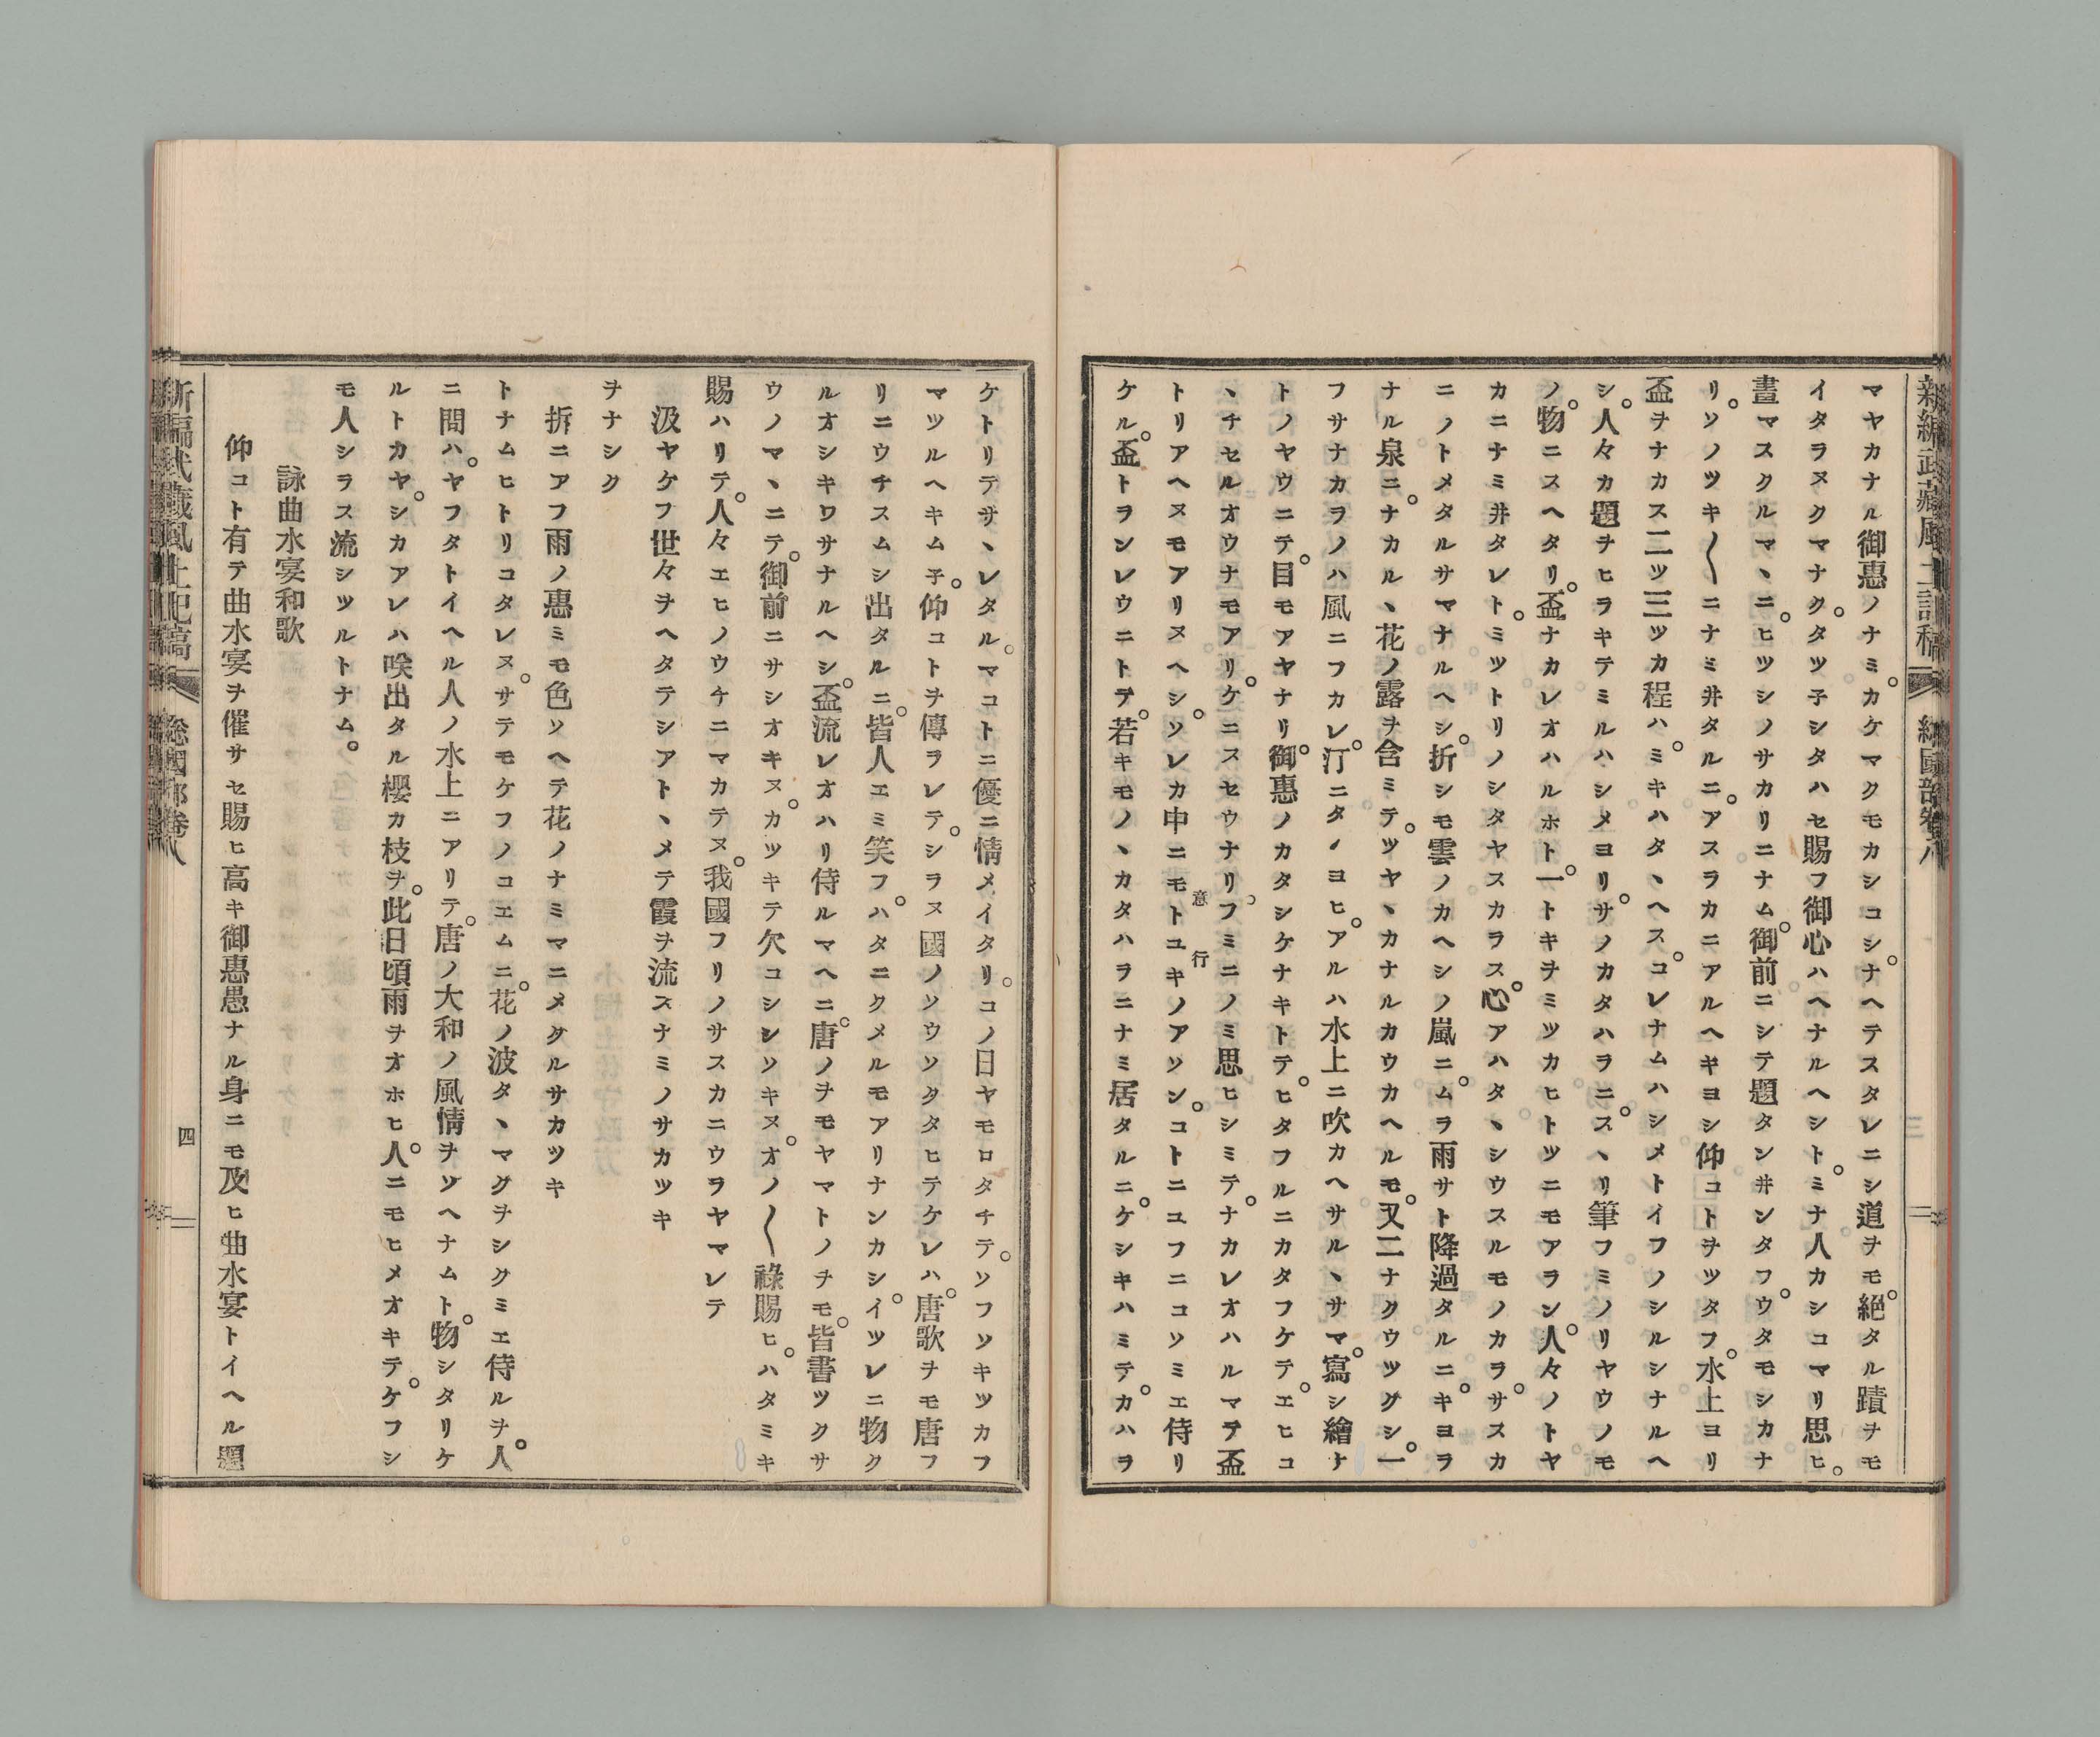 新編武藏風土記稿 總國部卷八
マヤカナル御惠ノナミ。カケマクモカシコシ。ナヘテスタレニシ道ヲモ。絕タル蹟ヲモ
イタラヌクマナク。タツ子シタハセ賜フ御心ハヘナルヘシト。ミナ人カシコマリ思ヒ。
晝マスクルマヽニ。ヒツシノサカリニナム。御前ニシテ題タンヰンタフ。ウタモシカナ
リ。ソノツキ〳〵ニナミ井タルニ。アスラカニアルヘキヨシ仰コトヲツタフ。水上ヨリ
盃ヲナカス二ツ三ツカ程ハ。ミキハタヽヘス。コレナムハシメトイフノシルシナルヘ
シ。人々カ題ヲヒラキテミルハシメヨリ。サノカタハラニ。スヽリ筆フミノリヤウノモ
ノ。物ニスヘタリ。盃ナカレオハルホト。一トキヲミツカヒトツニモアラン。人々ノトヤ
カニナミ井タレト。ミツトリノシタヤスカラス。心アハタヽシウスルモノカラ。サスカ
ニノトメタルサマナルヘシ。折シモ雲ノカヘシノ嵐ニ。ムラ雨サト降過タルニ。キヨラ
ナル泉ニ。ナカルヽ花ノ露ヲ含ミテ。ツヤヽカナルカウカヘルモ。又二ナクウツグシ。一
フサナカラノハ風ニフカレ。汀ニタヽヨヒ。アルハ水上ニ吹カヘサルヽサマ。寫シ繪ナ
トノヤウニテ。目モアヤナリ。御惠ノカタシケナキトテ。ヒタフルニカタフケテ。エヒコ
ヽチセルオウナモアリ。ケニスセウナリ。フミニノミ思ヒシミテ。ナカレオハルマテ盃
トリアヘヌモアリヌヘシ。ソレカ中ニモト意ユキ行ノアソン。コトニユフニコソミエ侍リ
ケル。盃トランレウニトテ。若キモノヽカタハラニナミ居タルニ。ケシキハミテ。カハラ
ケトリテサヽレタル。マコトニ優ニ情メイタリ。コノ日ヤモロタチテ。ソフツキツカフ
マツルヘキム子。仰コトヲ傳ラレテ。シラヌ國ノソウソタタヒテケレハ。唐歌ヲモ唐フ
リニウチスムシ出タルニ。皆人エミ笑フ。ハタニクメルモアリナンカシ。イツレニ物ク
ルオシキワサナルヘシ。盃流レオハリ侍ルマヘニ。唐ノヲモヤマトノヲモ。皆書ツクサ
ウノマヽニテ。御前ニサシオキヌ。カツキテ欠コシシソキヌ。オノ〳〵祿賜ヒ。ハタミキ
賜ハリテ。人々エヒノウチニマカテヌ。我國フリノサスカニウラヤマレテ
汲ヤケフ世々ヲヘタテシアトヽメテ霞ヲ流スナミノサカツキ
ヲナシク
折ニアフ雨ノ惠ミモ色ソヘテ花ノナミマニメクルサカツキ
トナムヒトリコタレヌ。サテモケフノコエムニ。花ノ波タヽマグヲシクミエ侍ルヲ。人
ニ問ハ。ヤフタトイヘル人ノ水上ニアリテ。唐ノ大和ノ風情ヲソヘナムト。物シタリケ
ルトカヤ。シカアレハ咲出タル櫻カ枝ヲ。此日頃雨ヲオホヒ。人ニモヒメオキテ。ケフシ
モ人シラス流シツルトナム。
詠曲水宴和歌
仰コト有テ曲水宴ヲ催サセ賜ヒ高キ御惠愚ナル身ニモ及ヒ曲水宴トイヘル題
新編武藏風土記稿 總國部卷八 四